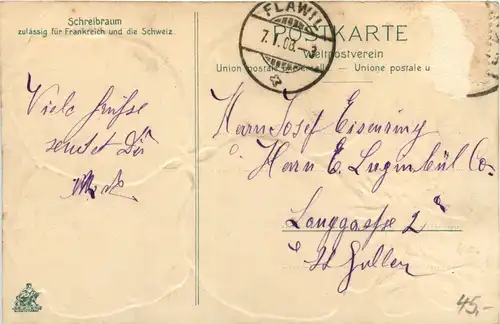 Schreibraum
zulässig für Frankreich und die Schweiz.
Viele Grüße
sendet Dir
FLAWIL
7.I.08.-3
POSTKARTE
Weltpostverein
Union postale universelle. — Unione postale u
Herrn Josef Eisenring
Herrn E. Luginbül Co.
Langgasse 2
St Gallen
45,-